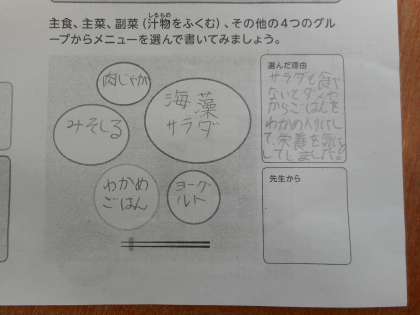 主食、主菜、副菜(汁物をふくむ)、その他の4つのグルー
ープからメニューを選んで書いてみましょう。
しるもの
肉じゃが
海藻
サラダ
みそしる
わかめ
ごはん
ヨーグ
ルト
選んだ理由
サラダを食べ
ないとダメや
からごはんを
わかめ入りにし
て、栄養を気に
してしました。
先生から